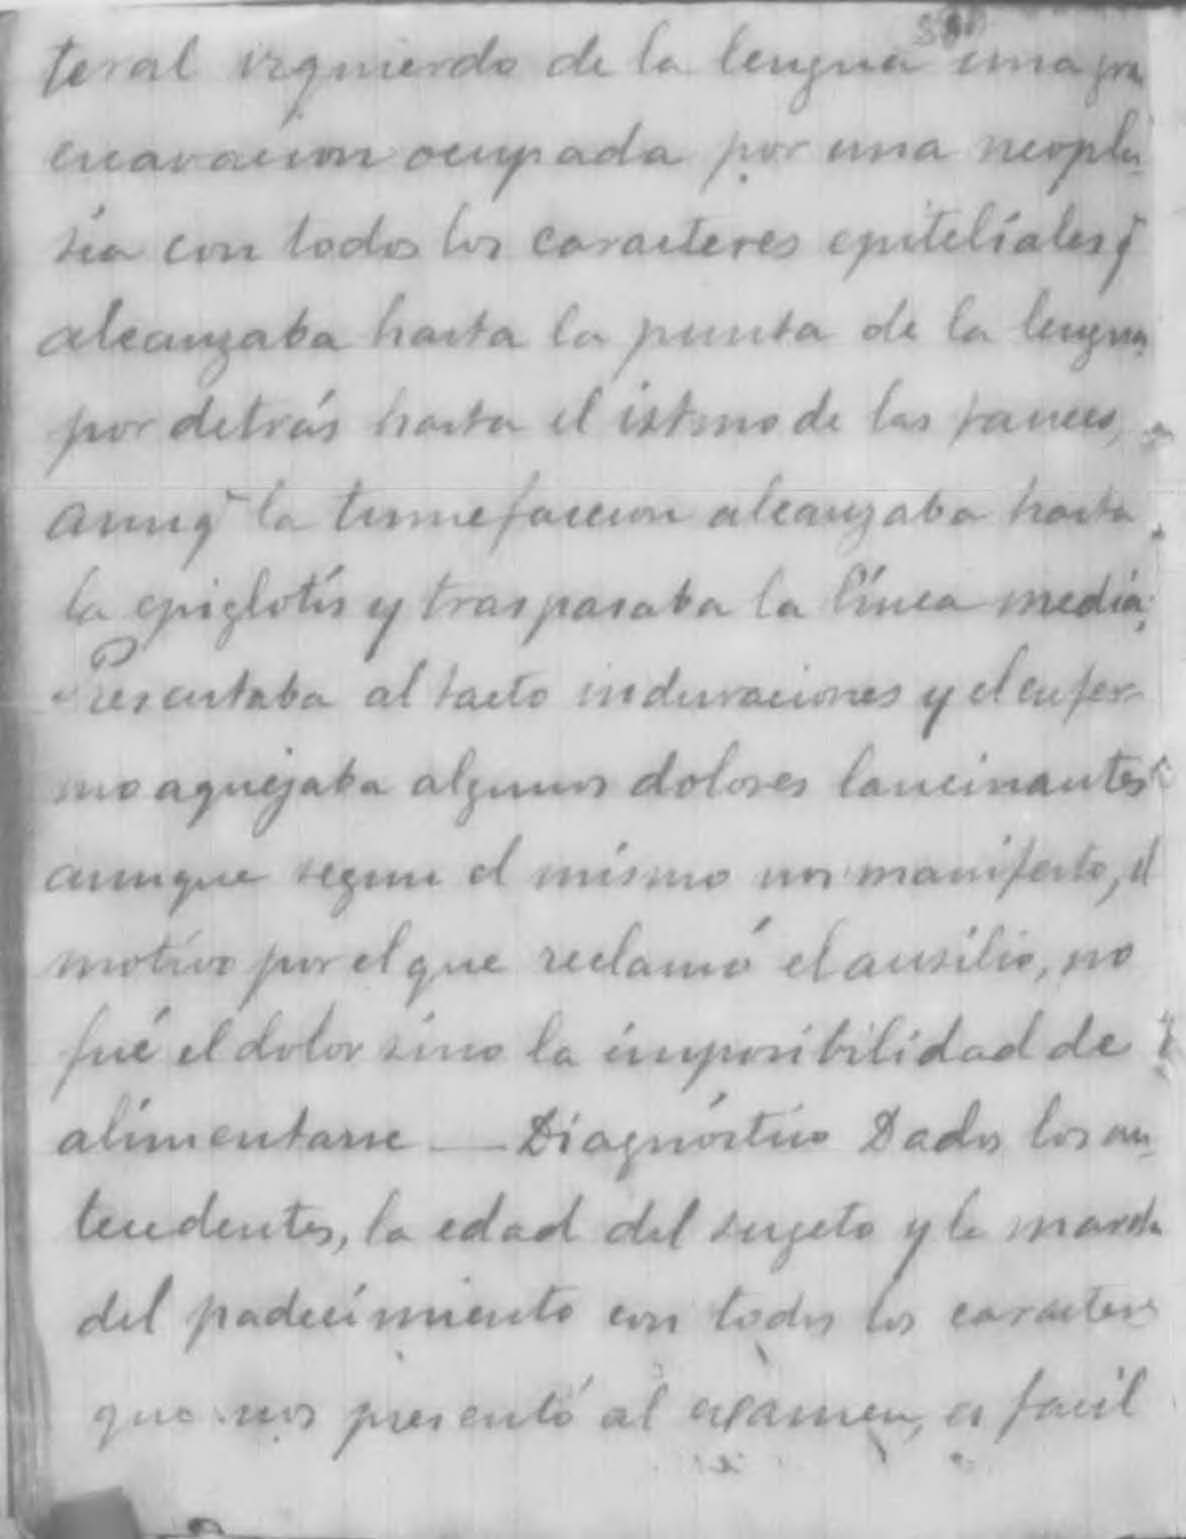 teral izquierdo de la lengua una gra
excavacion ocupada por una neopla-
sia con todos los caracteres epiteliales q̃
alcanzaba hasta la punta de la lengua
por detrás hasta el istmo de las fauces,
aunq̃ la tumefaccion alcanzaba hasta
la epiglotis y traspasaba la línea media;
Presentaba al tacto induraciones y el enfer-
mo aquejaba algunos dolores lancinantes
aunque segun el mismo nos manifesto, el
motivo por el que reclamó el ausilio, no
fué el dolor sino la imposibilidad de
alimentarse — Diagnóstico Dados los an-
tecedentes, la edad del sugeto y la marcha
del padecimiento con todos los caracteres
que nos presentó al examen, es facil